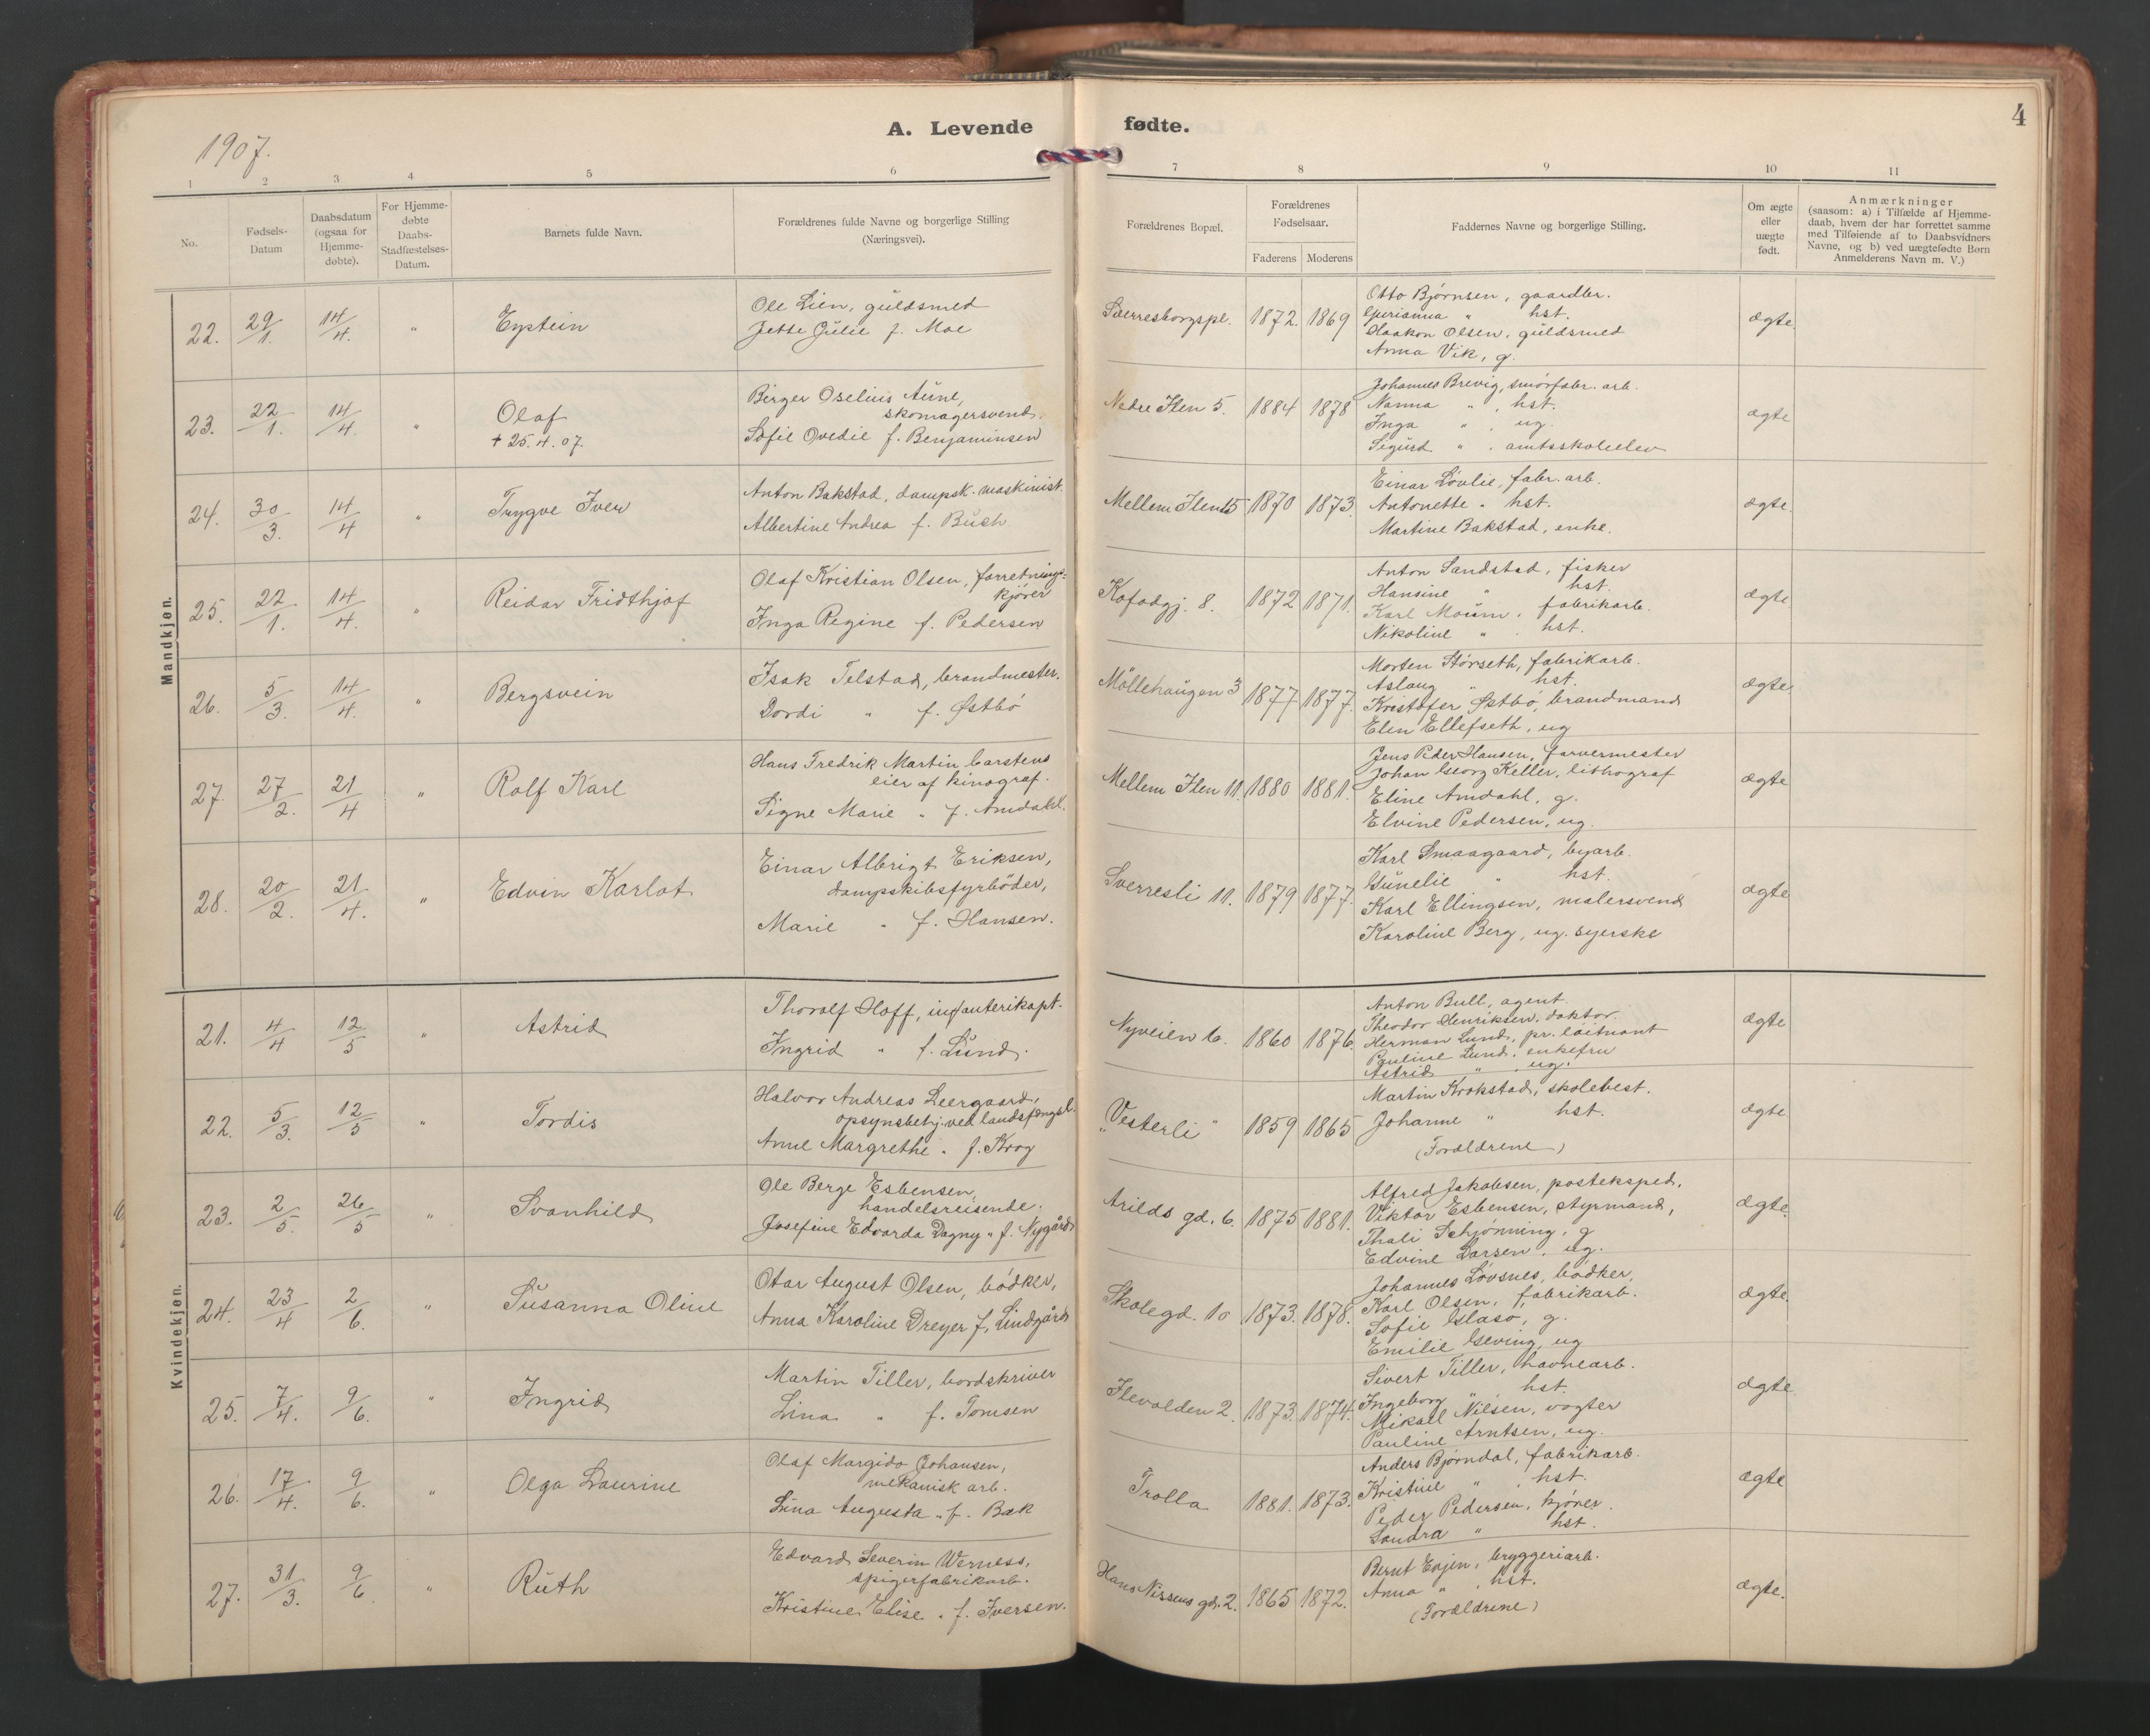 1907.
A. Levende fødte.
4
1 2 3 4 5 6 7 8 9 10 11
No.
Fødsels-
Datum
Daabsdatum
(ogsaa for
Hjemme-
døbte).
For Hjemme-
døbte
Daabs-
Stadfæstelses-
Datum.
Barnets fulde Navn.
Forældrenes fulde Navne og borgerlige Stilling
(Næringsvei).
Forældrenes Bopæl.
Forældrenes
Fødselsaar.
Faderens Moderens
Faddernes Navne og borgerlige Stilling.
Om ægte
eller
uægte
født.
Anmærkninger
(saasom: a) i Tilfælde af Hjemme-
daab, hvem der har forrettet samme
med Tilføiende af to Daabsvidners
Navne, og b) ved uægtefødte Børn
Anmelderens Navn m. V.)
Mandkjøn.
22. 29/1. 14/4. " Eystein
Ole Lien, guldsmed
Jette Julie f. Moe
Sverresborgspl. 1872. 1869
Otto Bjørnsen, gaardbr.
Gurianna " hst.
Haakon Olsen, guldsmed
Anna Vik, g.
ægte.
23. 22/1. 14/4. " Olaf
+ 25.4.07.
Birger Oselius Aune,
skomagersvend.
Sofie Ovedie f. Benjaminsen
Nedre Ilen 5. 1884 1878
Johannes Brevig, smörfabr. arb.
Nanna " , hst.
Inga " , ug.
Sigurd " , amtsskoleelev
ægte
24. 30/3. 14/4 " Trygve Iver
Anton Bakstad, dampsk. maskinist.
Albertine Andrea f. Busch
Mellem Ilen 15 1870 1873.
Einar Løvlie, fabr. arb.
Antonette " hst.
Martine Bakstad, enke.
ægte.
25. 22/1. 14/4. " Reidar Fridthjof
Olaf Kristian Olsen, forretnings=
kjører
Inga Regine f. Pedersen
Kofodgj. 8. 1872 1871.
Anton Sandstad, fisker
Hansine " hst.
Karl Moum, fabrikarb.
Nikoline " . hst.
ægte
26. 5/3. 14/4. " Bergsvein
Isak Telstad, brandmester.
Dordi " f. Østbö
Möllehaugen 3 1877 1877.
Morten Störseth, fabrikarb.
Aslaug " hst.
Kristofer Østbö, brandmand
Elen Ellefseth, ug
ægte.
27. 27/2. 21/4 " Rolf Karl
Hans Fredrik Martin Carstens
eier af kinograf.
Signe Marie " f. Amdahl.
Mellem Ilen 11. 1880 1881.
Jens Peder Hansen, farvermester
Johan Georg Keller, lithograf
Eline Amdahl, g.
Elvine Pedersen, ug.
ægte
28. 20/2. 21/4. " Edvin Karlot
Einar Albrigt Eriksen,
dampskibsfyrböder,
Marie " f. Hansen.
Sverresli 11. 1879 1877.
Karl Smaagaard, byarb.
Gunelie " hst.
Karl Ellingsen, malersvend
Karoline Berg, ug. syerske
ægte
Kvindekjøn.
21. 4/4 12/5 " Astrid
Thorolf Hoff, infanterikapt.
Ingrid " f. Lund.
Nyveien 6. 1860 1876.
Anton Bull, agent.
Theodor Henriksen, doktor.
Herman Lund, pr. löitnant
Pauline Lund, enkefru
Astrid " , ug.
ægte
22. 5/3. 12/5 " Tordis
Halvor Andreas Leergaard,
opsynsbetj. ved landsfængsl.
Anne Margrethe " f. Krog
"Vesterli" 1859 1865
Martin Krokstad, skolebest.
Johanne " hst.
(Forældrene)
ægte
23. 2/5. 26/5 " Svanhild
Ole Berge Esbensen,
handelsreisende.
Josefine Edvarda Dagny " f. Nygård
Arilds gd. 6. 1875 1881.
Alfred Jakobsen, posteksped.
Viktor Esbensen, styrmand,
Thali Schjønning, g
Edvine Larsen, ug.
ægte.
24. 23/4 2/6. " Susanna Oline
Otar August Olsen, bödker,
Anna Karoline Dreyer f. Lindgård
Skolegd. 10 1873. 1878.
Johannes Lövsnes, bödker,
Karl Olsen, fabrikarb.
Sofie Glasö, g.
Emilie Geving, ug
ægte.
25. 7/4. 9/6. " Ingrid
Martin Tiller, bordskriver
Lina " f. Tomsen
Ilevolden 2. 1873. 1874.
Sivert Tiller, havnearb.
Ingeborg " hst.
Mikael Nilsen, vogter
Pauline Arntsen, ug.
ægte.
26. 17/4. 9/6. " Olga Laurine
Olaf Margido Johansen,
mekanisk arb.
Lina Augusta " f. Bak
Trolla 1881. 1873.
Anders Bjørndal, fabrikarb.
Kristine " , hst.
Peder Pedersen, kjører.
Sandra " hst.
ægte
27. 31/3. 9/6. " Ruth
Edvard Severin Werness,
spigerfabrikarb.
Kristine Elise " f. Iversen.
Hans Nissens gd. 2. 1865 1872.
Bernt Evjen, bryggeriarb.
Anna " , hst.
(Forældrene)
ægte.